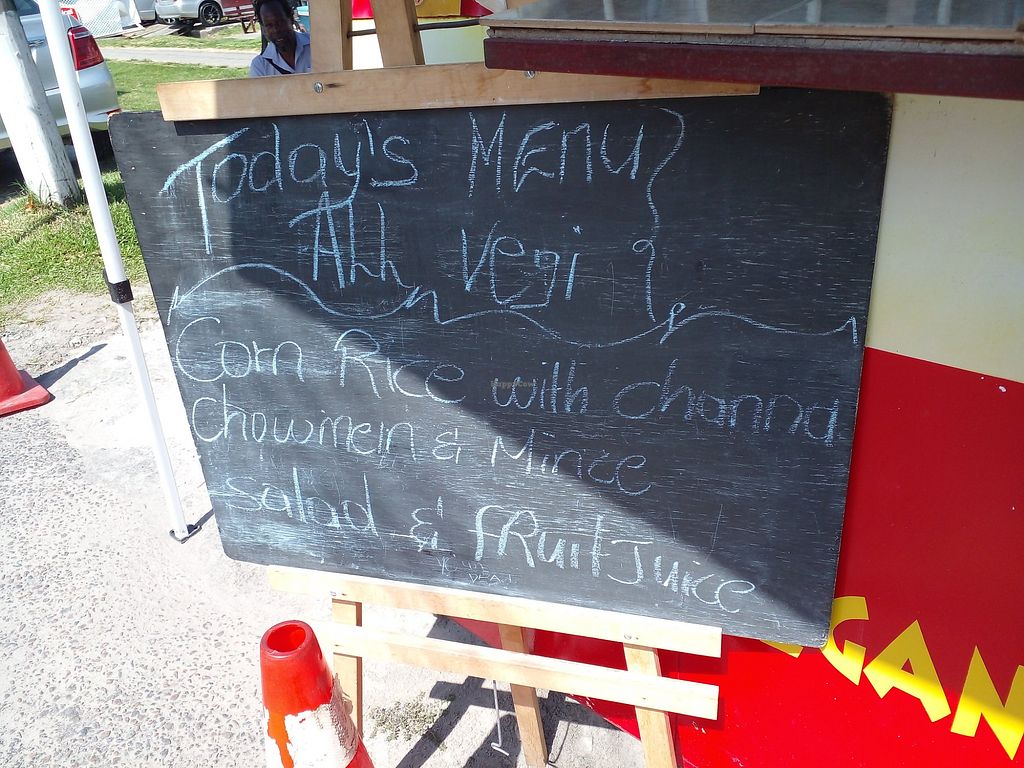 Today's MENU
All Vegi
Corn Rice with channa
chowmein & Mince
salad & FRuit Juice
GAN